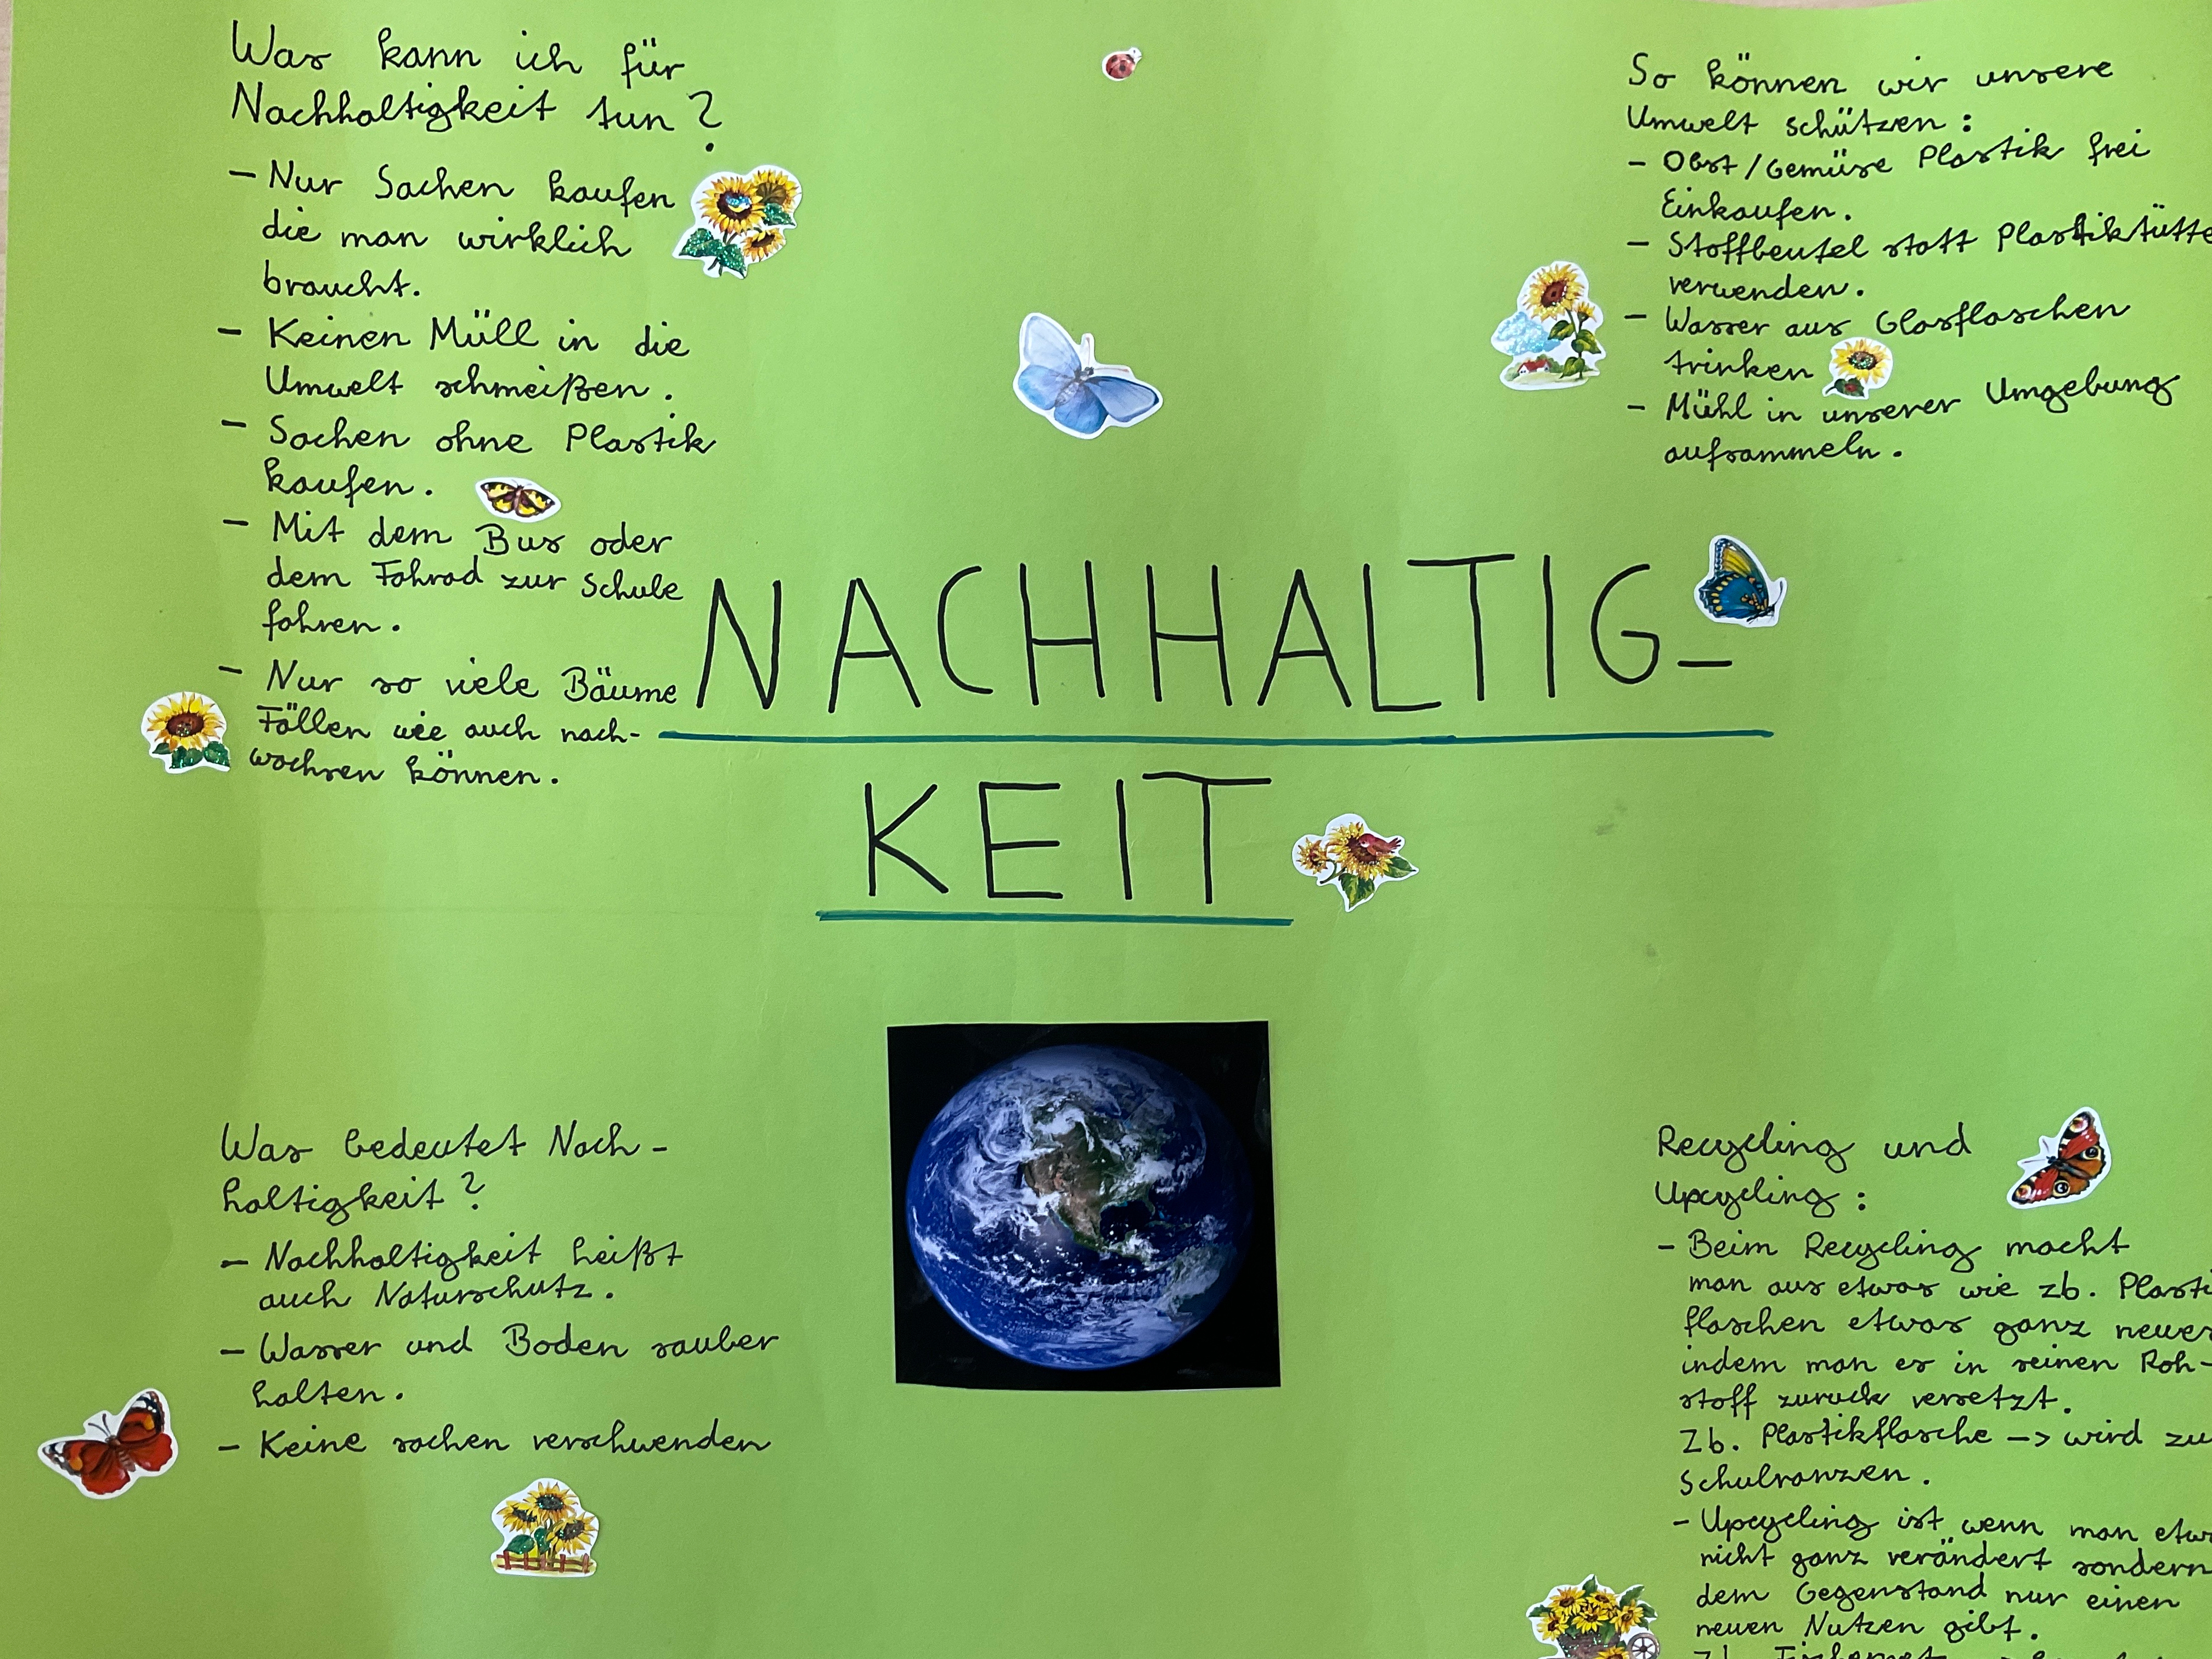 Was kann ich für
Nachhaltigkeit tun?
- Nur Sachen kaufen
die man wirklich
braucht.
- Keinen Müll in die
Umwelt schmeißen.
- Sachen ohne Plastik
kaufen.
- Mit dem Bus oder
dem Fahrad zur Schule
fahren.
- Nur so viele Bäume
Fällen wie auch nach-
wachsen können.
NACHHALTIG-
KEIT
So können wir unsere
Umwelt schützen:
- Obst/Gemüse Plastik frei
Einkaufen.
- Stoffbeutel statt Plastiktütte
verwenden.
- Wasser aus Glasflaschen
trinken
- Mühl in unserer Umgebung
aufsammeln.
Was bedeutet Nach-
haltigkeit?
- Nachhaltigkeit heißt
auch Naturschutz.
- Wasser und Boden sauber
halten.
- Keine sachen verschwenden
Recycling und
Upcycling:
- Beim Recycling macht
man aus etwas wie zb. Plasti
flaschen etwas ganz neues
indem man es in seinen Roh-
stoff zurück versetzt.
Zb. Plastikflasche -> wird zu
Schulranzen.
- Upcycling ist wenn man etw
nicht ganz verändert sondern
dem Gegenstand nur einen
neuen Nutzen gibt.